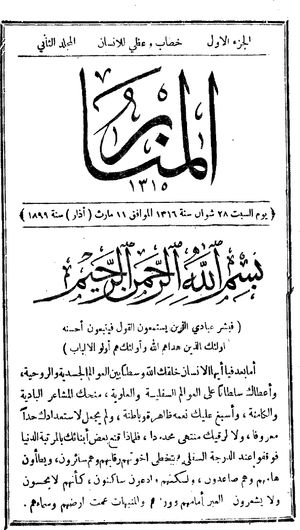 الجزء الاول خطاب وعظي للانسان المجلد الثاني
المنار
١٣١٥
﴿ يوم السبت ٢٨ شوال سنة ١٣١٦ الموافق ١١ مارث ( أذار ) سنة ١٨٩٩ ﴾
بسم الله الرحمن الرحيم
( فبشر عبادي الذين يستمعون القول فيتبعون أحسنه
اولئك الذين هداهم الله وأولئك هم أولو الالباب )
أما بعد فيا أيها الانسان خلقك الله وسطا بين العوالم الجسدية والروحية،
وأعطاك سلطانا على العوالم السفلية والعلوية، ومنحك المشاعر البادية
والكامنة، وأسبغ عليك نعمه ظاهرة وباطنة، ولم يجعل لاستعدادك حدا
معروفا، ولا لرقيك منتهى محددا، فلماذا قنع بعض أبنائك بالمرتبة الدنيا
فوقفوا عند الدرجة السفلى يتخطى اخوتهم رقابهم وهم سائرون، ويطأون
هامهم وهم صاعدون، ولكنهم وادعون ساكنون، كأنهم لا يحسون
ولا يشعرون العبر أمامهم ووراءهم والمنبهات عمت ارضهم وسماءهم